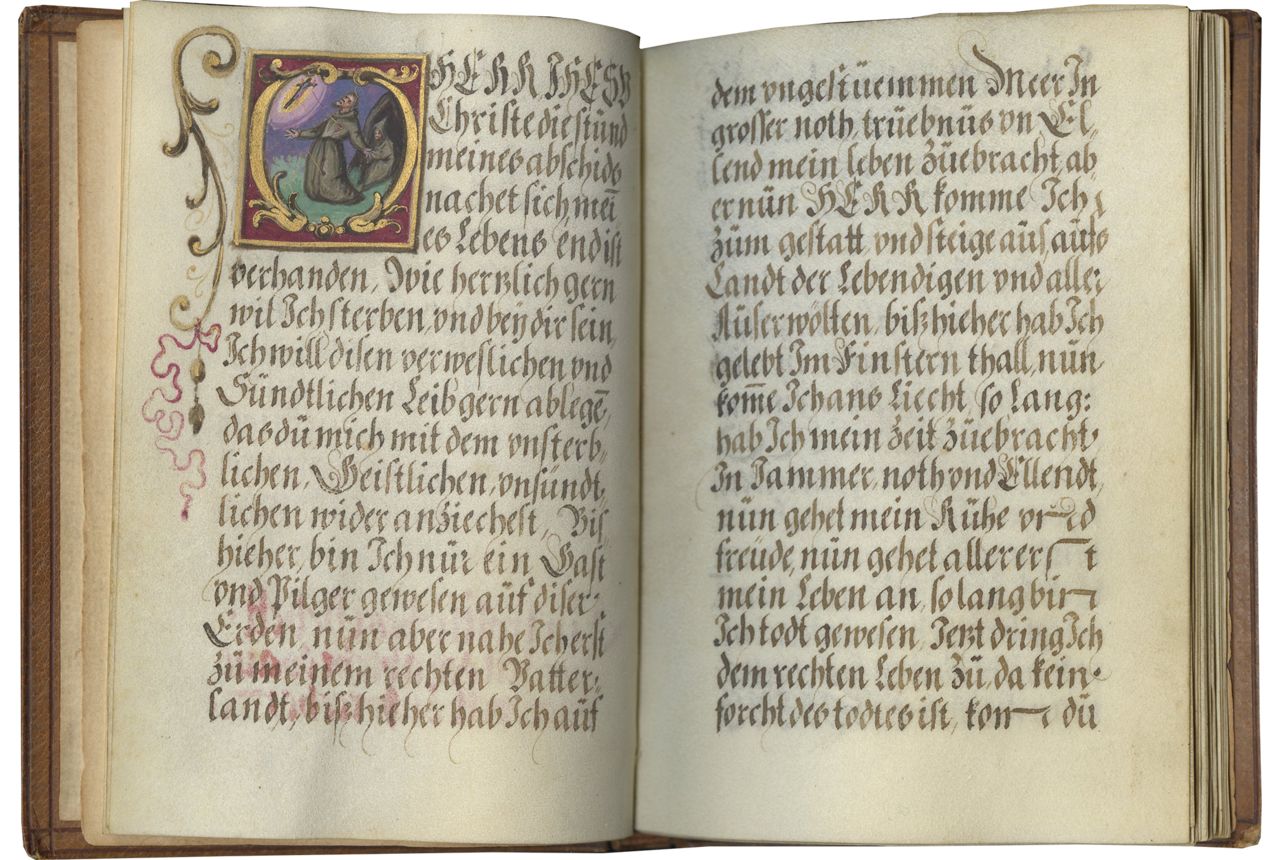 O HERR IHESV
Christe die stünd
meines abschids
nachet sich, mein̄
es Lebens end ist
verhanden, Wie hertzlich gern
wil Ich sterben, vnd bey dir sein,
Ich will disen verweslichen vnd
Sündtlichen Leib gern ablegē,
das dü mich mit dem vnsterb,
lichen, Geistlichen, vnsündt,
lichen wider anziechest, Bis
hieher, bin Ich nür ein Gast
vnd Pilger gewesen aüf diser
Erden, nün aber nahe Ich erst
zü meinem rechten Vatter,
landt, bißhieher hab Ich aüf
dem vngestüemmen Meer In
grosser noth, trüebnüs vn̄ El,
lend mein leben züebracht, ab
er nün HERR komme Ich
züm gestatt vnd steige aüs, aüfs
Landt der Lebendigen vnd aller
Aüserwölten, bißhieher hab Ich
gelebt Im Finstern thall, nün
kom̄e Ich ans Liecht, so Lang:
hab Ich mein Zeit züebracht
In Jammer, noth vnd Ellendt,
nün gehet mein Rühe vnd
freüde, nün gehet allererst
mein Leben an, so lang bin
Ich todt gewesen, Jetzt dring Ich
dem rechten Leben zü, da kein
forcht des todtes ist, kom dü